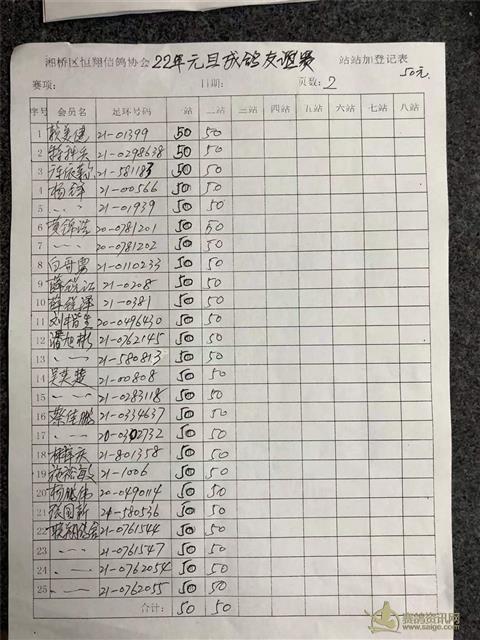 湘桥区恒翔信鸽协会 22年元旦成鸽友谊赛 站站加登记表
赛项: 日期: 页数: 2 50元
序号 会员名 足环号码 一站 二站 三站 四站 五站 六站 七站 八站
1 21-01399 50 50
2 21-0298638 50 50
3 21-581183 50 50
4 杨锋 21-00566 50 50
5 〃 21-01939 50 50
6 20-0781201 50 50
7 〃 20-0781202 50 50
8 21-0110233 50 50
9 21-0208 50 50
10 21-0381 50 50
11 20-0496430 50 50
12 潘旭彬 21-0762145 50 50
13 〃 21-580813 50 50
14 吴奕楚 21-00808 50 50
15 〃 21-0283118 50 50
16 蔡佳鹏 21-0334637 50 50
17 〃 20-0302732 50 50
18 21-801358 50 50
19 21-1006 50 50
20 杨鹏伟 20-0490114 50 50
21 张图新 21-580536 50 50
22 联翔鸽舍 21-0761544 50 50
23 〃 21-0761547 50 50
24 〃 21-0762054 50 50
25 〃 21-0762055 50 50
合计: 50 50
赛鸽资讯网
www.saige.com